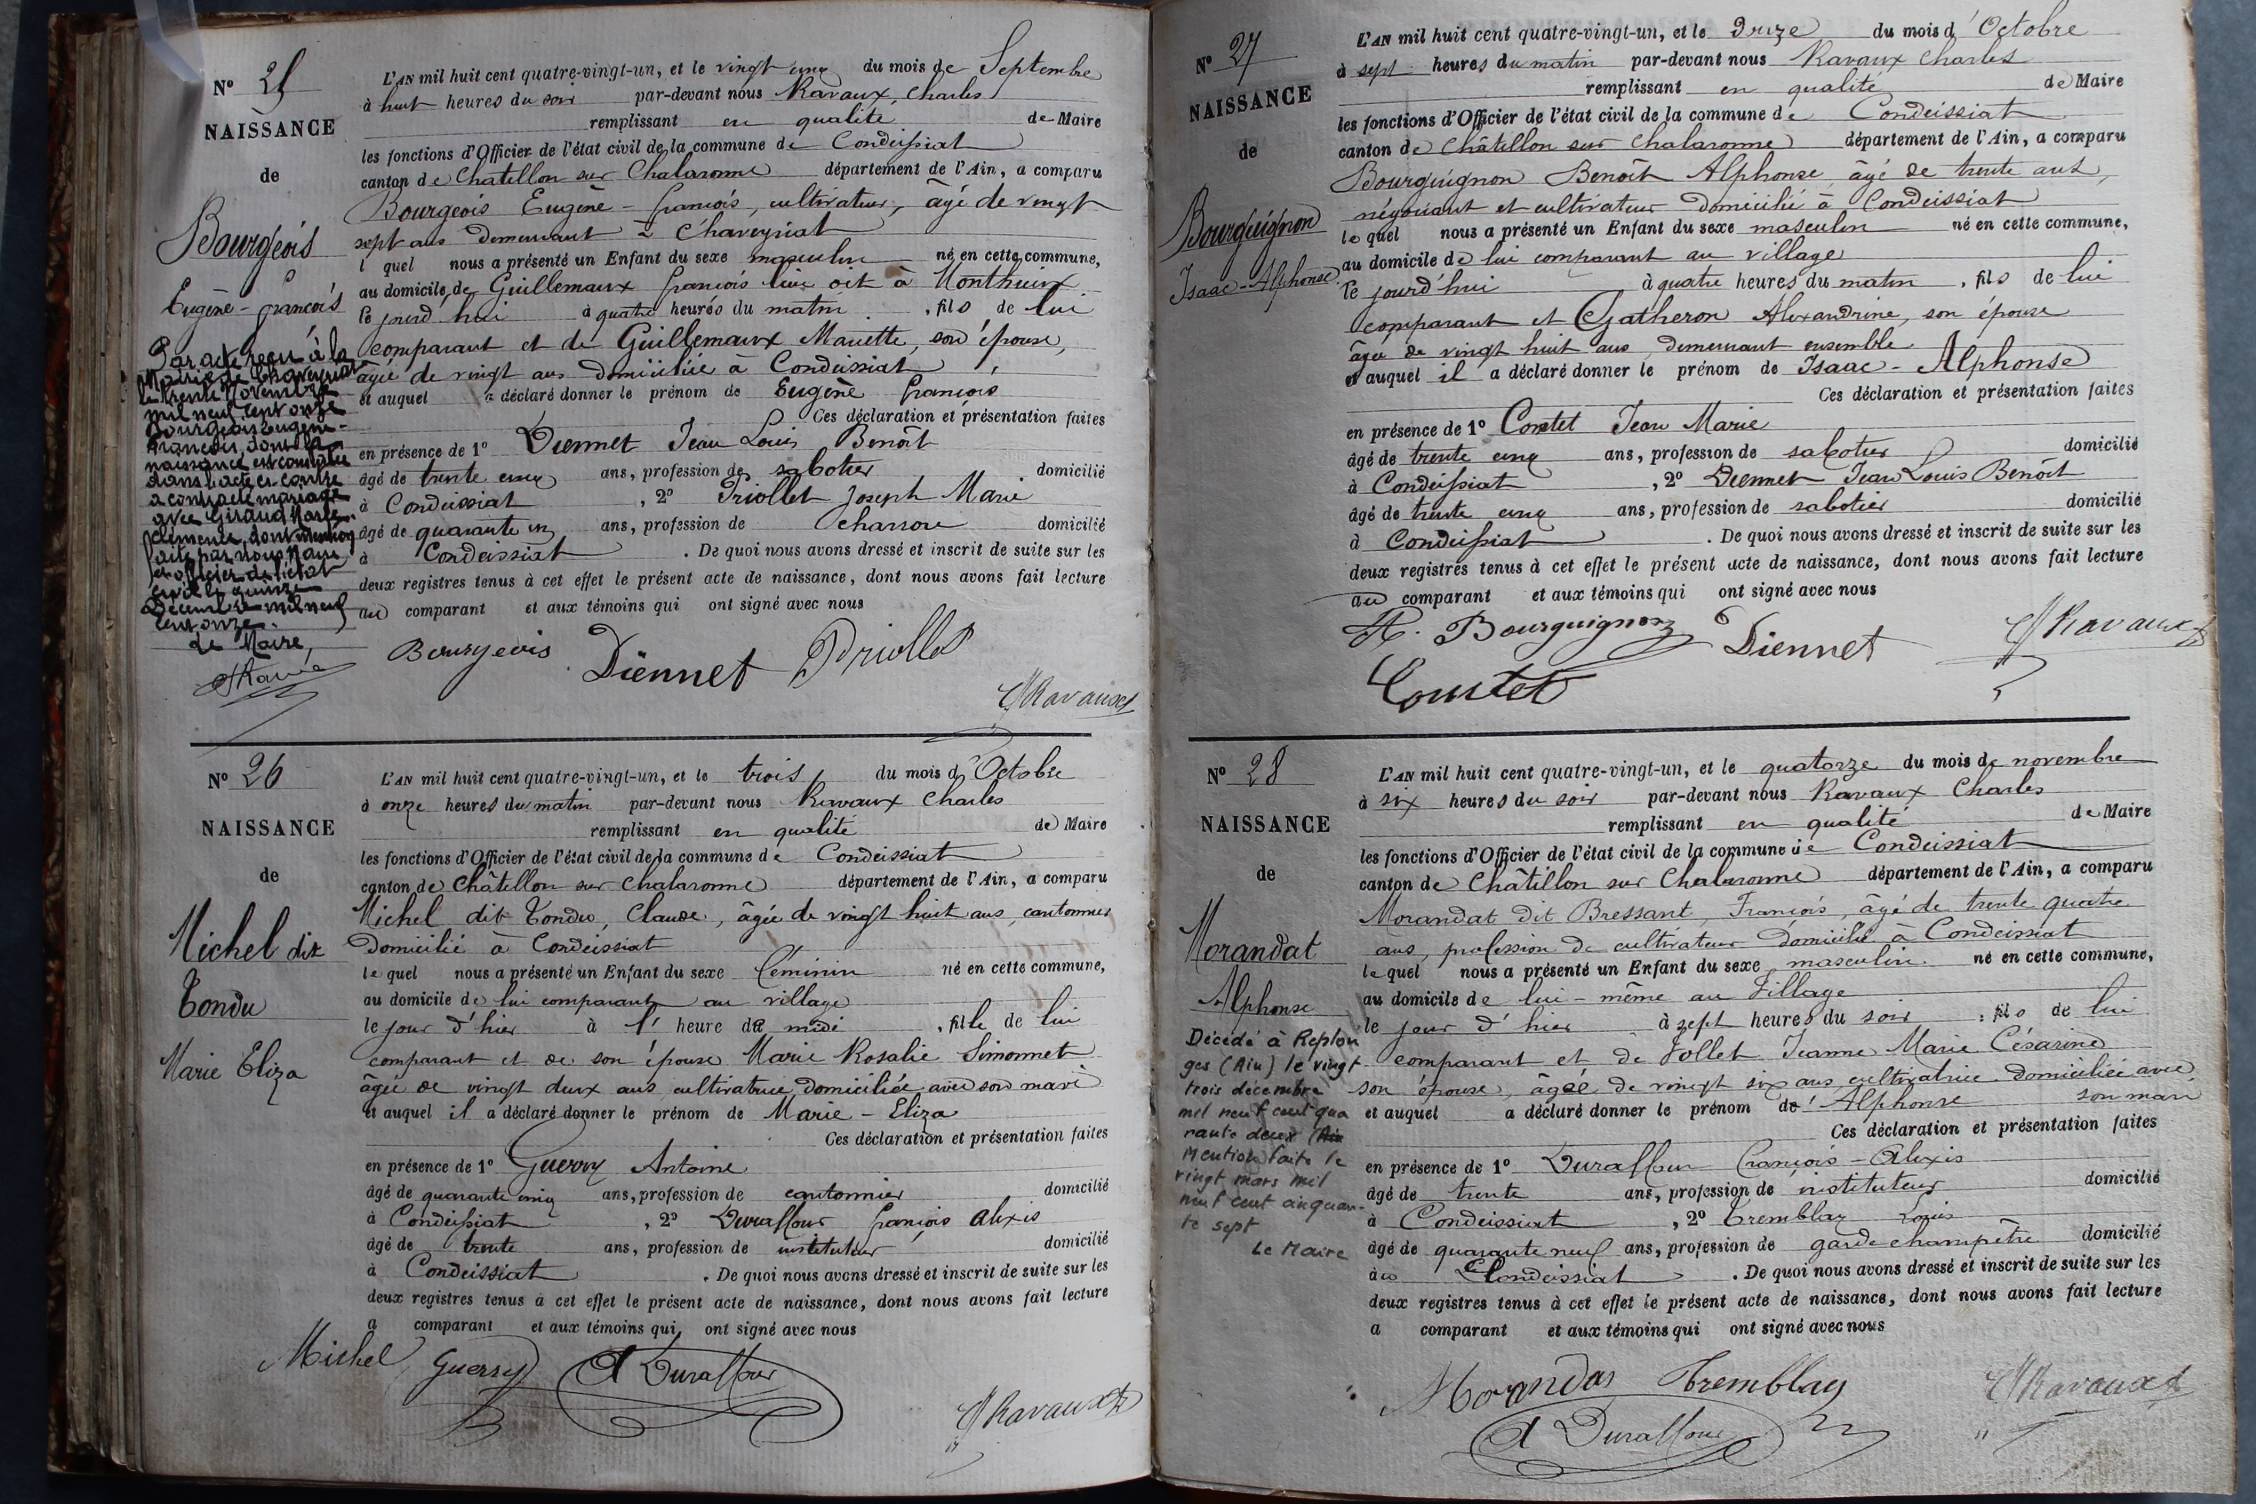 N° 25
NAISSANCE
de
Bourgeois
Eugène-françois
Par acte reçu à la
Mairie de Chaveyriat
le trente Novembre
mil neuf cent onze
Bourgeois Eugène-
François, dont la
naissance est constatée
dans l'acte ci-contre
a contracté mariage
avec Giraud Marie
Clémence, dont mention
faite par nous Maire
et officier de l'état
civil le quinze
Décembre mil neuf
cent onze.
Le Maire,
L'AN mil huit cent quatre-vingt-un, et le vingt cinq du mois de Septembre
à huit heures du soir par-devant nous Ravaux, Charles
remplissant en qualité de Maire
les fonctions d'Officier de l'état civil de la commune de Condeissiat
canton de Chatillon sur Chalaronne département de l'Ain, a comparu
Bourgeois Eugène-françois, cultivateur, âgé de vingt
sept ans demeurant à Chaveyriat
l quel nous a présenté un Enfant du sexe masculin né en cette commune,
au domicile de Guillemaux françois lieu dit à Monthuin
le jourd'hui à quatre heures du matin, fils de lui
comparant et de Guillemaux Mariette, son épouse,
âgée de vingt ans domiciliée à Condeissiat
et auquel a déclaré donner le prénom de Eugène françois
Ces déclaration et présentation faites
en présence de 1° Diennet Jean Louis Benoît
âgé de trente cinq ans, profession de sabotier domicilié
à Condeissiat, 2° Priollet Joseph Marie
âgé de quarante un ans, profession de charron domicilié
à Condeissiat. De quoi nous avons dressé et inscrit de suite sur les
deux registres tenus à cet effet le présent acte de naissance, dont nous avons fait lecture
au comparant et aux témoins qui ont signé avec nous
Bourgeois Diennet Priollet
Ravaux
N° 26
NAISSANCE
de
Michel dit
Tondu
Marie Eliza
L'AN mil huit cent quatre-vingt-un, et le trois du mois d'Octobre
à onze heures du matin par-devant nous Ravaux Charles
remplissant en qualité de Maire
les fonctions d'Officier de l'état civil de la commune de Condeissiat
canton de Châtillon sur Chalaronne département de l'Ain, a comparu
Michel dit Tondu, Claude, âgée de vingt huit ans, cantonnier
domicilié à Condeissiat
le quel nous a présenté un Enfant du sexe féminin né en cette commune,
au domicile de lui comparant au village
le jour d'hier à l' heure de midi, fille de lui
comparant et de son épouse Marie Rosalie Simonnet
âgée de vingt deux ans, cultivatrice, domiciliée avec son mari
et auquel il a déclaré donner le prénom de Marie-Eliza
Ces déclaration et présentation faites
en présence de 1° Guerry Antoine
âgé de quarante cinq ans, profession de cantonnier domicilié
à Condeissiat, 2° Duraffour françois alexis
âgé de trente ans, profession de instituteur domicilié
à Condeissiat. De quoi nous avons dressé et inscrit de suite sur les
deux registres tenus à cet effet le présent acte de naissance, dont nous avons fait lecture
a comparant et aux témoins qui ont signé avec nous
Michel Guerry A Duraffour
Ravaux
N° 27
NAISSANCE
de
Bourguignon
Isaac-Alphonse
L'AN mil huit cent quatre-vingt-un, et le onze du mois d'Octobre
à sept heures du matin par-devant nous Ravaux Charles
remplissant en qualité de Maire
les fonctions d'Officier de l'état civil de la commune de Condeissiat
canton de Châtillon sur Chalaronne département de l'Ain, a comparu
Bourguignon Benoît Alphonse âgé de trente ans,
négociant et cultivateur domicilié à Condeissiat
le quel nous a présenté un Enfant du sexe masculin né en cette commune,
au domicile de lui comparant au village
le jourd'hui à quatre heures du matin, fils de lui
comparant et Gatheron Alexandrine, son épouse
âgée de vingt huit ans, demeurant ensemble
et auquel il a déclaré donner le prénom de Isaac-Alphonse
Ces déclaration et présentation faites
en présence de 1° Comtet Jean Marie
âgé de trente cinq ans, profession de sabotier domicilié
à Condeissiat, 2° Diennet Jean Louis Benoît
âgé de trente cinq ans, profession de sabotier domicilié
à Condeissiat. De quoi nous avons dressé et inscrit de suite sur les
deux registres tenus à cet effet le présent acte de naissance, dont nous avons fait lecture
au comparant et aux témoins qui ont signé avec nous
A. Bourguignon Diennet Ravaux
Comtet
N° 28
NAISSANCE
de
Morandat
Alphonse
Décédé à Replon
ges (Ain) le vingt
trois décembre
mil neuf cent qua
rante deux (Ain
Mention faite le
vingt mars mil
neuf cent cinquan-
te sept
Le Maire
L'AN mil huit cent quatre-vingt-un, et le quatorze du mois de novembre
à six heures du soir par-devant nous Ravaux Charles
remplissant en qualité de Maire
les fonctions d'Officier de l'état civil de la commune de Condeissiat
canton de Châtillon sur Chalaronne département de l'Ain, a comparu
Morandat dit Bressant, François, âgé de trente quatre
ans, profession de cultivateur domicilié à Condeissiat
le quel nous a présenté un Enfant du sexe masculin né en cette commune,
au domicile de lui-même au Village
le jour d'hier à sept heures du soir, fils de lui
comparant et de Jollet Jeanne Marie Césarine
son épouse, âgée de vingt six ans, cultivatrice domiciliée avec
son mari
et auquel a déclaré donner le prénom de Alphonse
Ces déclaration et présentation faites
en présence de 1° Duraffour François-Alexis
âgé de trente ans, profession de instituteur domicilié
à Condeissiat, 2° Tremblay Louis
âgé de quarante neuf ans, profession de garde champêtre domicilié
à Condeissiat. De quoi nous avons dressé et inscrit de suite sur les
deux registres tenus à cet effet le présent acte de naissance, dont nous avons fait lecture
a comparant et aux témoins qui ont signé avec nous
Morandas Tremblay Ravaux
A Duraffour